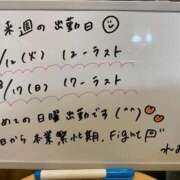 来週の出勤日
/12(火) 12-ラスト
/17(日) 17-ラスト
めての日曜出勤です(^^)
日から本業繁忙期、Fight